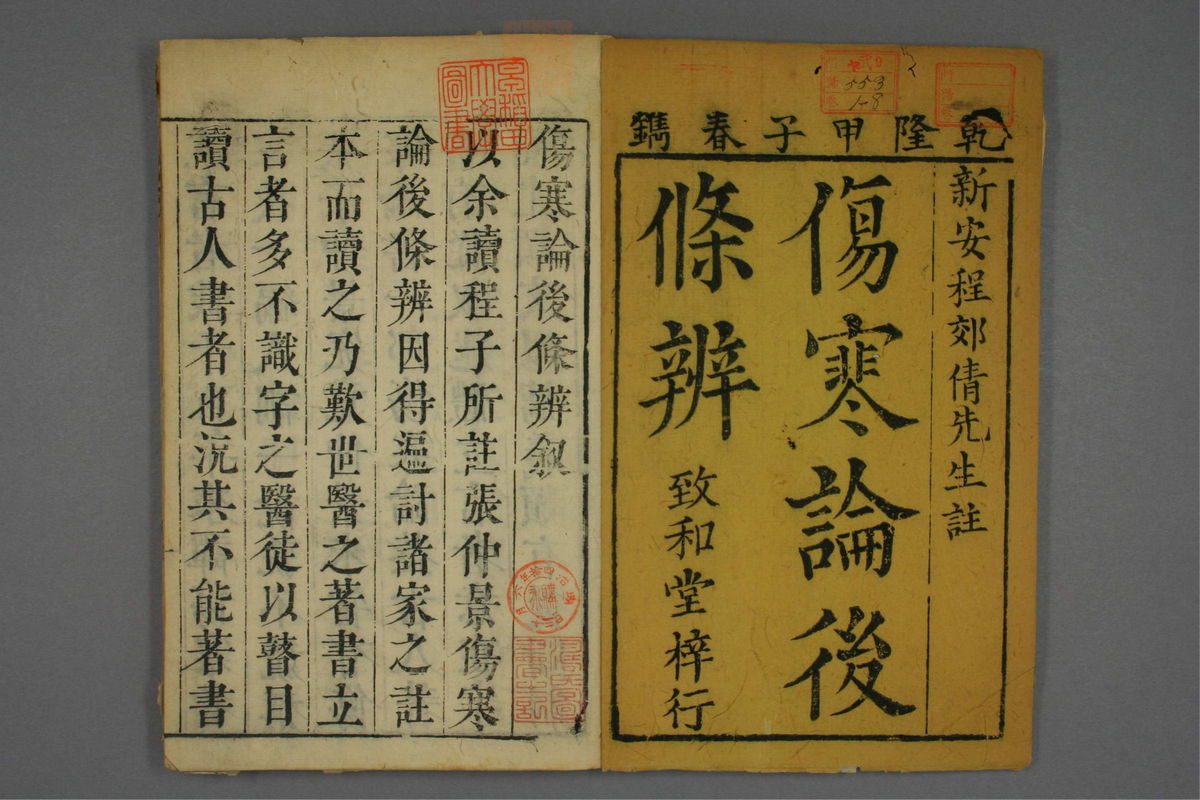 乾隆甲子春鐫
新安程郊倩先生註
傷寒論後
條辨
致和堂梓行
553
1-8
傷寒論後條辨叙
以余讀程子所註張仲景傷寒
論後條辨因得遍討諸家之註
本而讀之乃歎世醫之著書立
言者多不識字之醫徒以瞽目
讀古人書者也况其不能著書
早稻田大學圖書